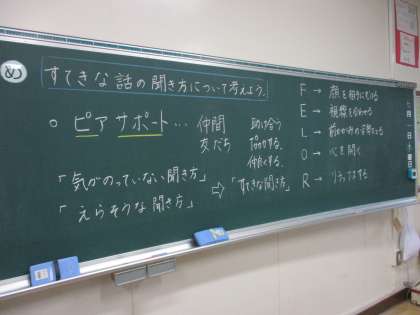 め
すてきな話の聞き方について考えよう。
○ ピア サポート … 仲間 助け合う
友だち
仲良くする。
「気がのっていない聞き方」
「えらそうな聞き方」 ⇨ 「すてきな聞き方」
F → 顔を相手にむける
E → 視線を合わせる
L →
O → 心を開く
R → リラックスする